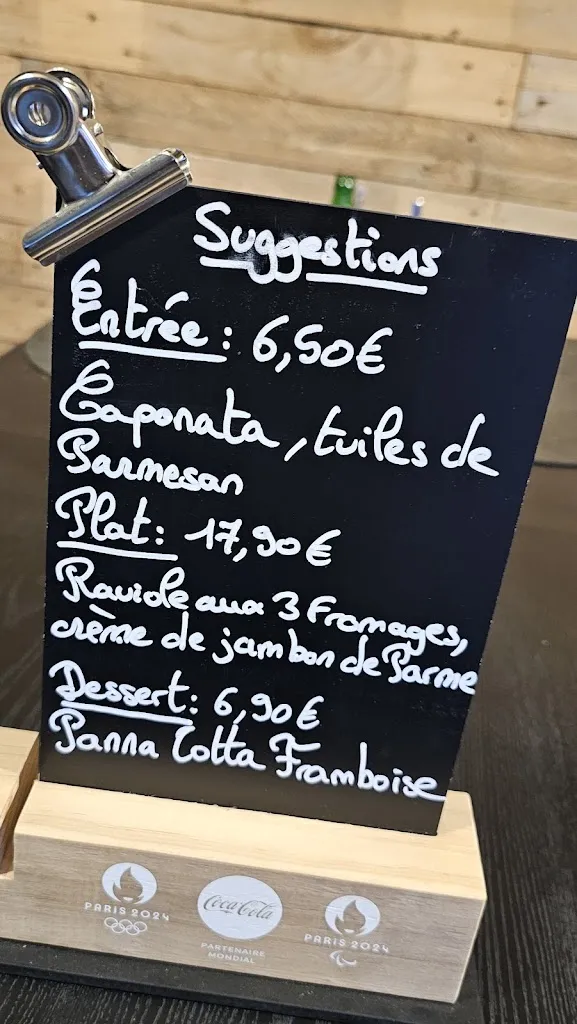 Suggestions
Entrée : 6,50€
Caponata, tuiles de
Parmesan
Plat : 17,90€
Raviole aux 3 Fromages,
crème de jambon de Parme
Dessert : 6,90€
Panna Cotta Framboise
PARIS 2024
Coca-Cola
PARTENAIRE
MONDIAL
PARIS 2024